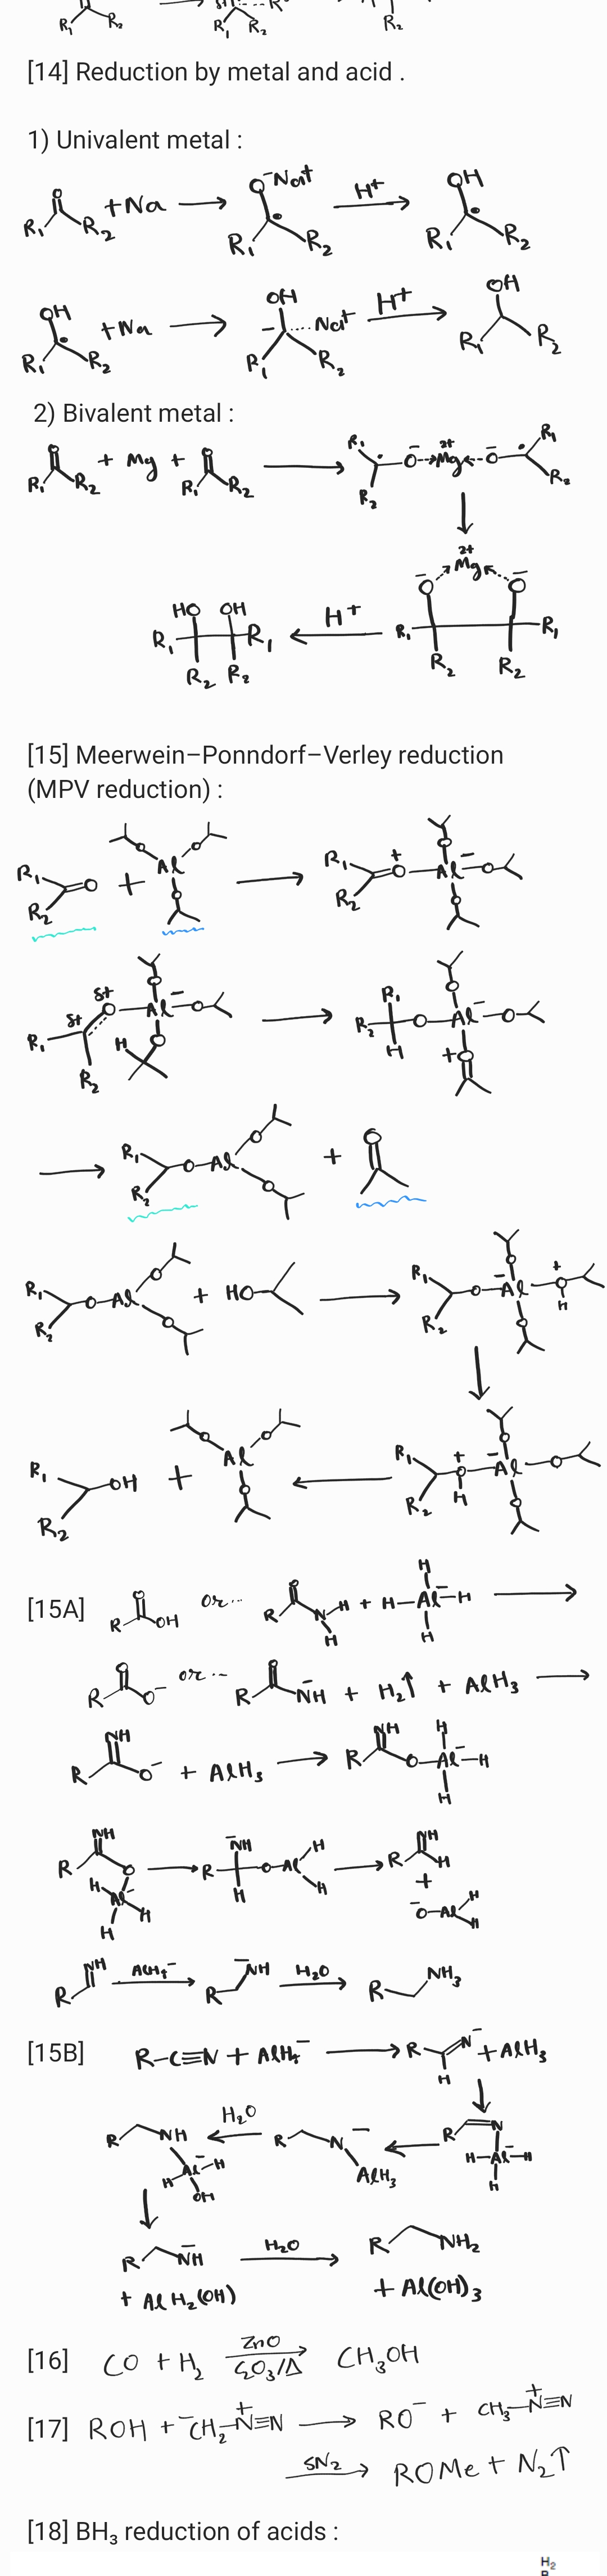 R₁ R₂ R₁ R₂ R₂
[14] Reduction by metal and acid .
1) Univalent metal :
O R₁ R₂ +Na → O⁻Na⁺ R₁ R₂ H⁺ → OH R₁ R₂
OH R₁ R₂ +Na → OH – Na⁺ R₁ R₂ H⁺ → OH R₁ R₂
2) Bivalent metal :
O R₁ R₂ + Mg + O R₁ R₂ → R₁ R₂ O⁻ Mg²⁺ O⁻ R₁ R₂
HO OH R₁ R₁ R₂ R₂ ← H⁺ O⁻ Mg²⁺ O⁻ R₁ R₁ R₂ R₂
[15] Meerwein–Ponndorf–Verley reduction
(MPV reduction) :
R₁ R₂ =O + O Al O O → R₁ R₂ =O⁺–Al⁻ O O O
R₁ δ+ R₂ δ+ O–Al⁻ O O O H → R₁ R₂ H O–Al⁻ O O +O
→ R₁ R₂ O–Al O O + O
R₁ R₂ O–Al O O + HO → R₁ R₂ O–Al⁻ O O O⁺ H
R₁ R₂ OH + O Al O O ← R₁ R₂ O⁺ H –Al⁻ O O O
[15A] R O OH or... R O N–H H + H–Al⁻–H H H →
R O O⁻ or... R O N̄H + H₂↑ + AlH₃ →
R NH O⁻ + AlH₃ → R NH O–Al⁻–H H H
R NH O H Al⁻ H H → R N̄H H O–Al H H → R NH H + ⁻O–Al H H
R NH AlH₄⁻ → R N̄H H₂O → R NH₃
[15B] R–C≡N + AlH₄⁻ → R N⁻ H + AlH₃
R NH H Al⁻ H OH ← H₂O R N⁻ AlH₃ ← R N H–Al⁻–H H
R N̄H + AlH₂(OH) H₂O → R NH₂ + Al(OH)₃
[16] CO + H₂ ZnO → CH₃OH
[17] ROH + ⁻CH₂–N⁺≡N → RO⁻ + CH₃–N⁺≡N
SN2 → ROMe + N₂↑
[18] BH₃ reduction of acids :
H₂